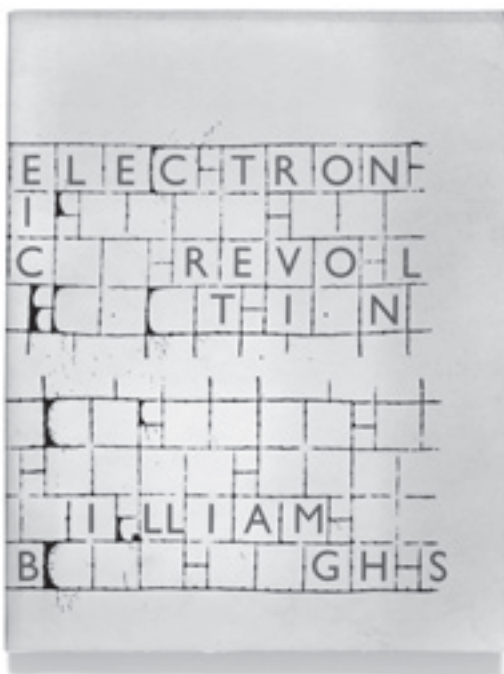 ELECTRON
I
C REVOL
T I N
ILLIAM
B GHS